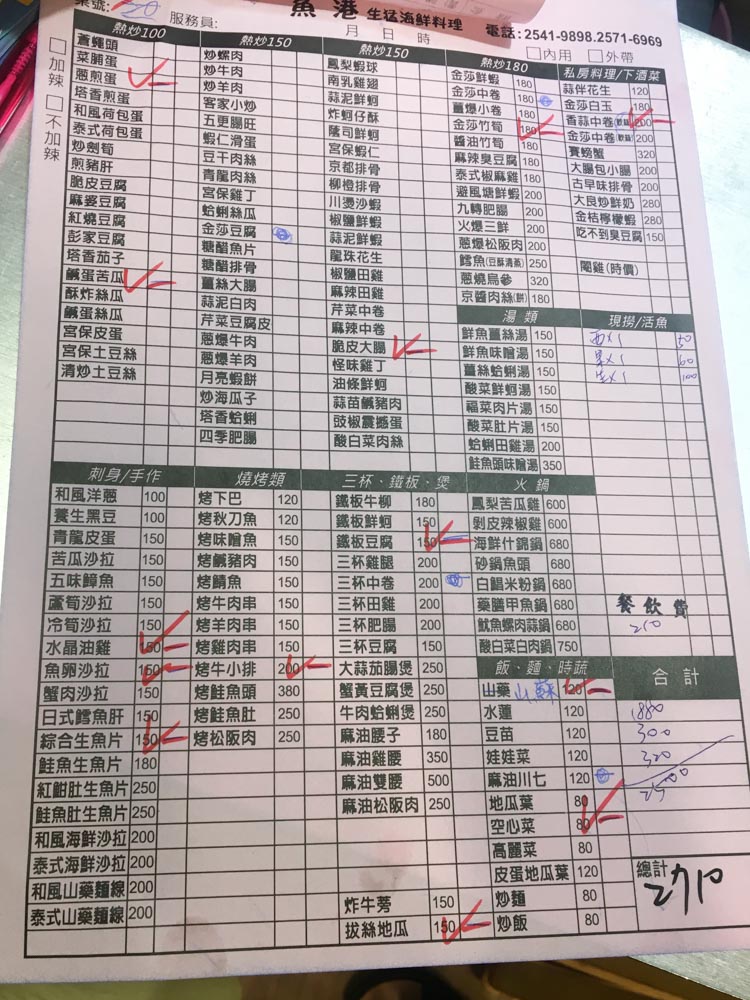 桌號: 30 服務員:
魚港 生猛海鮮料理
月 日 時
電話:2541-9898.2571-6969
□內用 □外帶
□加辣 □不加辣
熱炒100
蒼蠅頭
菜脯蛋
蔥煎蛋
塔香煎蛋
和風荷包蛋
泰式荷包蛋
炒劍筍
煎豬肝
脆皮豆腐
麻婆豆腐
紅燒豆腐
彭家豆腐
塔香茄子
鹹蛋苦瓜
酥炸絲瓜
鹹蛋絲瓜
宮保皮蛋
宮保土豆絲
清炒土豆絲
熱炒150
炒螺肉
炒牛肉
炒羊肉
客家小炒
五更腸旺
蝦仁滑蛋
豆干肉絲
青龍肉絲
宮保雞丁
蛤蜊絲瓜
金莎豆腐
糖醋魚片
糖醋排骨
薑絲大腸
蒜泥白肉
芹菜豆腐皮
蔥爆牛肉
蔥爆羊肉
月亮蝦餅
炒海瓜子
塔香蛤蜊
四季肥腸
熱炒150
鳳梨蝦球
南乳雞翅
蒜泥鮮蚵
炸蚵仔酥
蔭司鮮蚵
宮保蝦仁
京都排骨
柳橙排骨
川燙沙蝦
椒鹽鮮蝦
蒜泥鮮蝦
龍珠花生
椒鹽田雞
麻辣田雞
芹菜中卷
麻辣中卷
脆皮大腸
怪味雞丁
油條鮮蚵
蒜苗鹹豬肉
豉椒震撼蛋
酸白菜肉絲
熱炒180
金莎鮮蝦 180
金莎中卷 180
薑爆小卷 180
金莎竹筍 180
醬油竹筍 180
麻辣臭豆腐 180
泰式椒麻雞 180
避風塘鮮蝦 200
九轉肥腸 200
火爆三鮮 200
蔥爆松阪肉 200
鱈魚(豆酥清蒸) 250
蔥燒烏參 320
京醬肉絲(餅) 180
私房料理/下酒菜
蒜伴花生 120
金莎白玉 180
香蒜中卷(軟絲) 200
金莎中卷(軟絲) 200
賽螃蟹 320
大腸包小腸 200
古早味排骨 200
大良炒鮮奶 280
金桔檸檬蝦 280
吃不到臭豆腐 150
閹雞(時價)
湯類
鮮魚薑絲湯 150
鮮魚味噌湯 150
薑絲蛤蜊湯 150
酸菜鮮蚵湯 150
福菜肉片湯 150
酸菜肚片湯 150
蛤蜊田雞湯 200
鮭魚頭味噌湯 350
現撈/活魚
50
60
100
刺身/手作
和風洋蔥 100
養生黑豆 100
青龍皮蛋 150
苦瓜沙拉 150
五味鱆魚 150
蘆筍沙拉 150
冷筍沙拉 150
水晶油雞 150
魚卵沙拉 150
蟹肉沙拉 150
日式鱈魚肝 150
綜合生魚片 150
鮭魚生魚片 180
紅魽肚生魚片 250
鮭魚肚生魚片 250
和風海鮮沙拉 200
泰式海鮮沙拉 200
和風山藥麵線 200
泰式山藥麵線 200
燒烤類
烤下巴 120
烤秋刀魚 120
烤味噌魚 150
烤鹹豬肉 150
烤鯖魚 150
烤牛肉串 150
烤羊肉串 150
烤雞肉串 150
烤牛小排 200
烤鮭魚頭 380
烤鮭魚肚 250
烤松阪肉 250
三杯、鐵板、煲
鐵板牛柳 180
鐵板鮮蚵 150
鐵板豆腐 150
三杯雞腿 200
三杯中卷 200
三杯田雞 200
三杯肥腸 200
三杯豆腐 150
大蒜茄腸煲 250
蟹黃豆腐煲 250
牛肉蛤蜊煲 250
麻油腰子 180
麻油雞腰 350
麻油雙腰 500
麻油松阪肉 250
炸牛蒡 150
拔絲地瓜 150
火鍋
鳳梨苦瓜雞 600
剝皮辣椒雞 600
海鮮什錦鍋 680
砂鍋魚頭 680
白鯧米粉鍋 680
藥膳甲魚鍋 680
魷魚螺肉蒜鍋 680
酸白菜白肉鍋 750
餐飲費
210
飯、麵、時蔬
山藥 山蘇 120
水蓮 120
豆苗 120
娃娃菜 120
麻油川七 120
地瓜葉 80
空心菜 80
高麗菜 80
皮蛋地瓜葉 120
炒麵 80
炒飯 80
合計
1880
300
320
2500
總計
2710